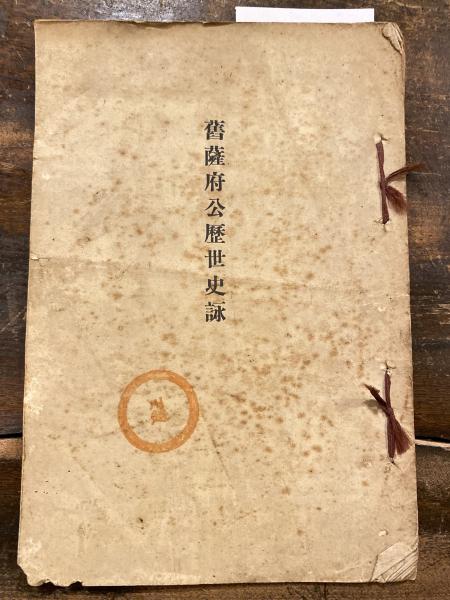 舊薩府公歷世史詠